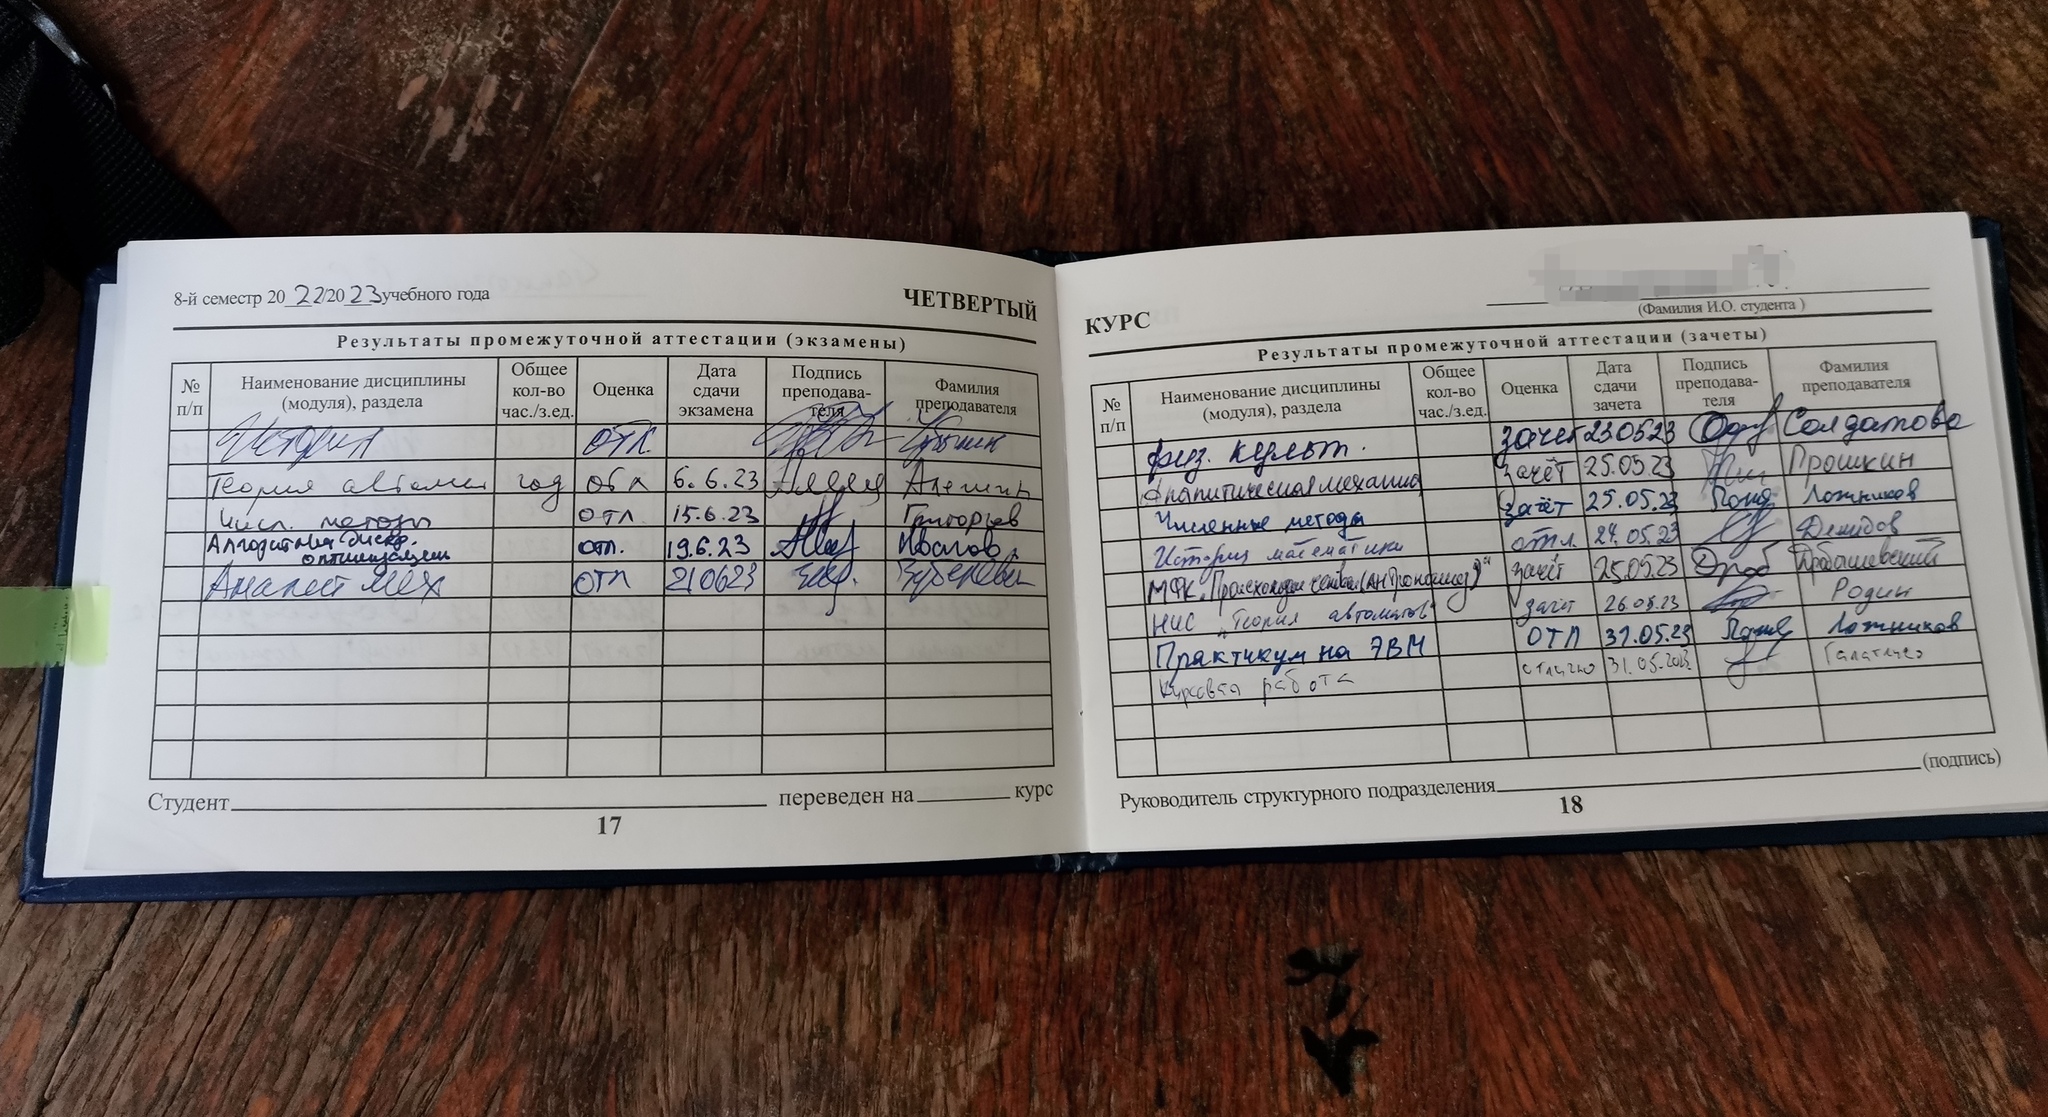 8-й семестр 20 22/20 23 учебного года
ЧЕТВЕРТЫЙ
Результаты промежуточной аттестации (экзамены)
№ п/п Наименование дисциплины (модуля), раздела Общее кол-во час./з.ед. Оценка Дата сдачи экзамена Подпись преподава-теля Фамилия преподавателя
История отл.
Теория автоми год отл 6.6.23 Алешин
Числ. методы отл 15.6.23 Григорьев
Алгоритмы дискр. оптимизации отл. 19.6.23 Иванов
Аналит мех отл 210623
Студент переведен на курс
17
КУРС
(Фамилия И.О. студента )
Результаты промежуточной аттестации (зачеты)
№ п/п Наименование дисциплины (модуля), раздела Общее кол-во час./з.ед. Оценка Дата сдачи зачета Подпись преподава-теля Фамилия преподавателя
физ. культ. зачет 230523 Солдатова
Аналитическая механика зачёт 25.05.23 Прошкин
Численные методы зачёт 25.05.23 Ложников
История математики отл. 24.05.23 Демидов
МФК зачёт 25.05.23 Дробышевский
НИС "Теория автоматов" зачёт 26.05.23 Родин
Практикум на ЭВМ ОТЛ 31.05.23 Ложников
Курсовая работа отлично 31.05.2023 Галатенко
Руководитель структурного подразделения (подпись)
18